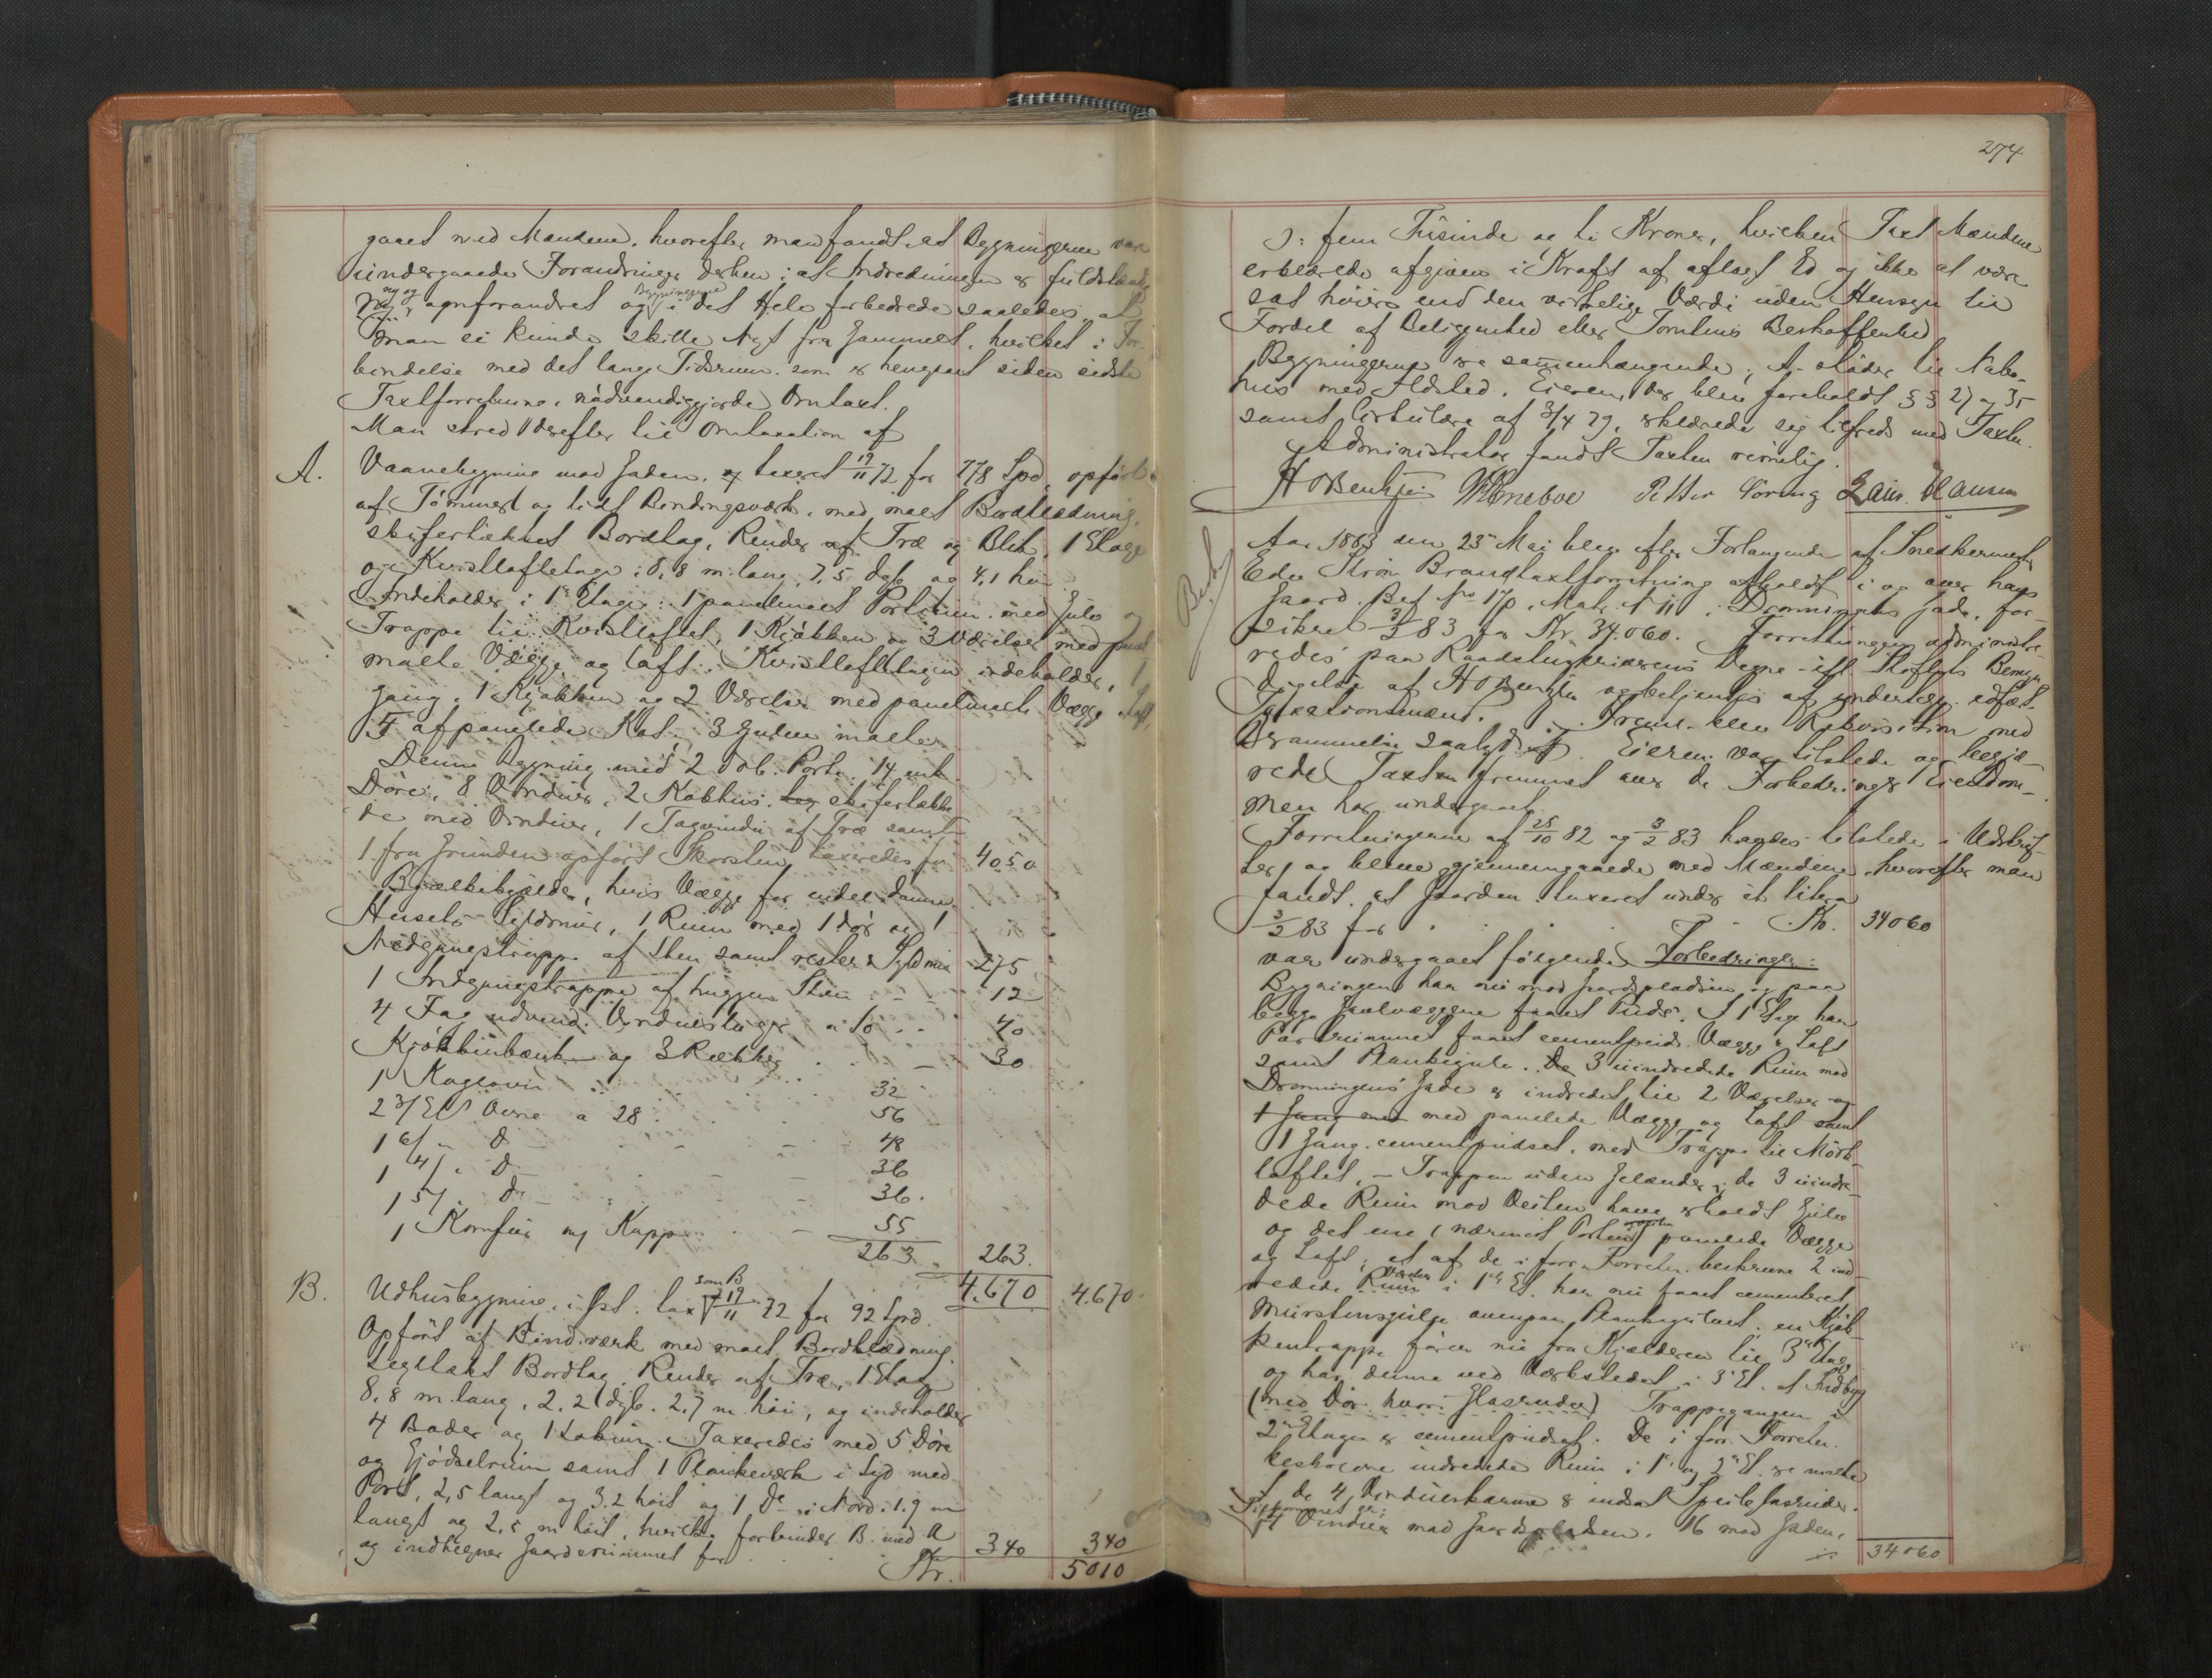 gaaet med Mændene, hvorefter man fandt at Bygningerne vare
undergaaede Forandringer derhen: at Indredningen er fuldstændig
ny og omforandret og Bygningerne i det Hele forbedrede saaledes at
man ei kunde skille Nyt fra Gammelt, hvilket i For-
bindelse med det lange Tidsrum som er hengaaet siden sidste
Taxtforretning, nødvendiggjorde Omtaxt.
Man skred derefter til Omtaxation af
A. Vaanebygning mod Gaden, taxeret 19/11 72 for 778 Spd, opført
af Tømmer og lidt Bindingsværk, med malet Bordklædning,
skifertækket Bordtag, Render af Træ og Blik, 1 Etage
og Kvistloftetage: 8,8 m. lang, 7,5 dyb og 4,1 høi
Indeholder i 1e Etage: 1 panelmalet Portrum med Gulv og
Trappe til Kvistloftet, 1 Kjøkken og 3 Værelser med panel
malte Vægge og Loft. Kvistloftetagen indeholder, 1
Gang, 1 Kjøkken og 2 Værelser med panelmalte Vægge Loft,
afpanelede Kot. 3 Gulve malte.
Denne Bygning med 2 dob. Porte, 14 enk.
Døre, 8 Vinduer, 2 Kobhus, skifertække
de med Vinduer, 1 Tagvindu af Træ samt
1 fra Grunden opført Skorsten taxeredes for 4050
Bjælkekjelder, hvis Vægge for endel danne
Husets Syldmur, 1 Rum med 1 Dør og 1
Nedgangstrappe af Sten samt rester. Syldmur 275
1 Indgangstrappe af huggen Sten - - 12
4 Fag udvend. Vinduesluger a 10 . . 40
Kjøkkenbænk og 3 Rækker . . - 30
1 Kogeovn . . . 32
2 3/Et Ovne a 28 . . . 56
1 6/" D . - - 48
1 4/" D - . - - 36
1 5/" Do - . - 36.
1 Komfur og Kappe . . - 55
263. 263.
4.670 4.670.
B. Udhusbygning, i Øst. tax som B 19/11 72 for 92 Spd.
Opført af Bindværk med malt Bordklædning
teglstækt Bordtag, Render af Træ, 1 Etage
8,8 m. lang, 2,2 dyb. 2,7 m. høi, og indeholder
4 Boder og 1 Lokum. Taxeredes med 5 Døre
og Gjødselrum samt 1 Plankeværk i Syd med
Port, 2,5 langt og 3.2 høit og 1 Do i Nord. 1.9 m
langt og 2,5 m høit, hvilke forbinder B. med A
og indhegner Gaardsrummet for 340 340
Kr. 5010
274
ɔ: fem Tusinde og ti Kroner, hvilken Taxt Mændene
erklærede afgiven i Kraft af aflagt Ed og ikke at være
sat høiere end den virkelige Værdi uden Hensyn til
Fordel af Beliggenhed eller Tomtens Beskaffenhed
Bygningerne ere sammenhængende; A. støder til Nabo-
hus med Ildsted. Eieren, der blev foreholdt §§ 27 og 35
samt Cirkulære af 3/4 79, erklærede sig tilfreds med Taxten.
Administrator fandt Taxten rimelig.
Petter Laur. Hansen
Aar 1883 den 25 Mai blev efter Forlangende af Snedkermester
Edv. Strøm Brandtaxtforretning afholdt i og over hans
Gaard. Bet. No 17p, Matr. No 11 i Dronningens Gade, for-
sikret 3/2 83 for Kr. 34.060. Forretningen administre-
redes paa Raadstueskriverens Vegne efter Stiftets Bemyn-
digelse af og betjentes af undertegn. edfæst.
Taxationsmænd. Fremlagdes Rekvisition med
Berammelse saalyd. Eieren var tilstede og begjæ-
rede Taxten fremmet over de Forbedringer Eiendom-
men har undergaaet.
Forretningerne af 25/10 82 og 3/2 83 havdes tilstede i Udskrif-
ter og bleve gjennemgaaede med Mændene, hvorefter man
fandt, at Gaarden taxeret under et litera
3/2 83 for . . . . . Kr. 34060
var undergaaet følgende Forbedringer:
Bygningen har nu mod Gaardspladsen og paa
begge Gavlvæggene faaet Puds. I 1 Etage har
Portrummet faaet cementpuds. Vægge & Loft
samt Plankegulv. De 3 uindredede Rum mod
Dronningens Gade er indredet til 2 Værelser og
1 Gang med med panelede Vægge og Loft samt
1 Gang cementpudset, med Trappe til Mørk-
loftet, - Trappen uden Gelænder; de 3 uindre-
dede Rum mod Veiten have erholdt Gulve
og det ene (nærmest Porten) panelede Vægge
og Loft; et af de i forr. Forretn. beskrevne 2 ind-
redede Værelser Rum i 1ste Et. har nu faaet cementeret
Murstensgulv ovenpaa Plankegulvet; en Kjøk-
kentrappe fører nu fra Kjelderen til 3de Etage
og har denne ved Værkstedet i 3e Et. et Indbyg
(med Dør hvori Glasruder) Trappegangen i
2en Etage er cementpudset. De i forr. Forretn.
beskrevne indredede Rum i 1e og 2en Et. ere malte
I de 4 Vindueskarme er indsat Speilglasruder.
4 Vinduer mod Gaardspladsen. 16 mod Gaden.
34060